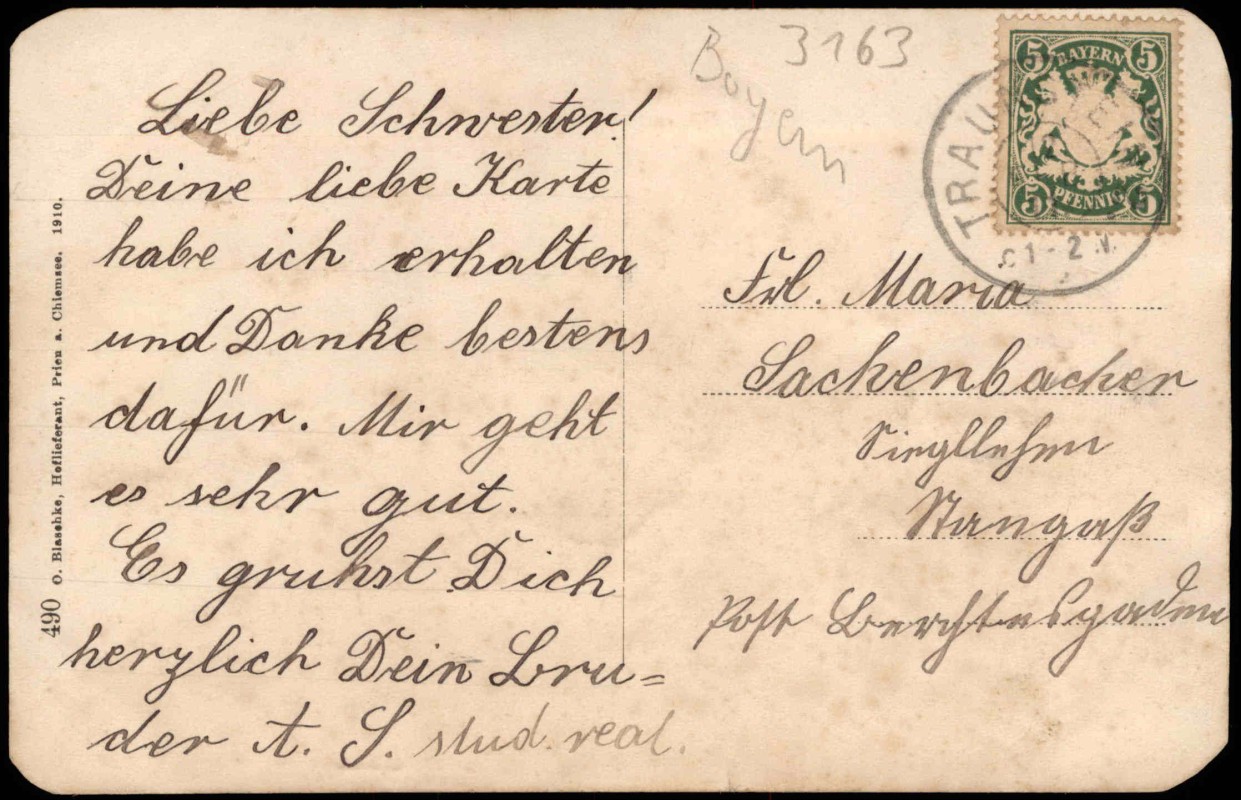 Liebe Schwester!
Deine liebe Karte
habe ich erhalten
und Danke bestens
dafür. Mir geht
es sehr gut.
Es gruhst Dich
herzlich Dein Bru=
der A. S. stud. real.
490 O. Blaschke, Hoflieferant, Prien a. Chiemsee. 1910.
Bayern
3163
5 BAYERN 5
5 PFENNIG 5
TRAU
1-2 N.
Frl. Maria
Sackenbacher
Siegllehen
Stangaß
Post Berchtesgaden